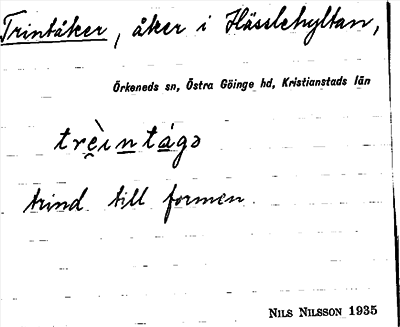 Trintåker, åker i Hässlehyltan,
Örkeneds sn, Östra Göinge hd, Kristianstads län
trèintágə
trind till formen.
NILS NILSSON 1935